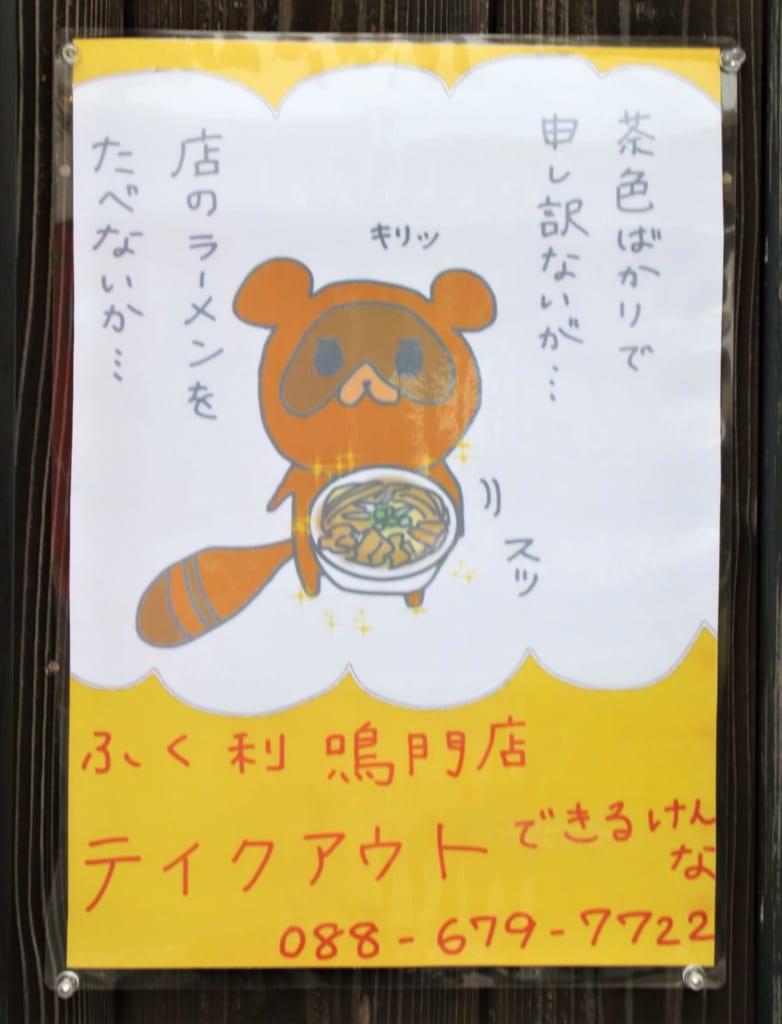 茶色ばかりで
申し訳ないが…
キリッ
店のラーメンを
たべないか…
スッ
ふく利 鳴門店
テイクアウトできるけんな
088-679-7722